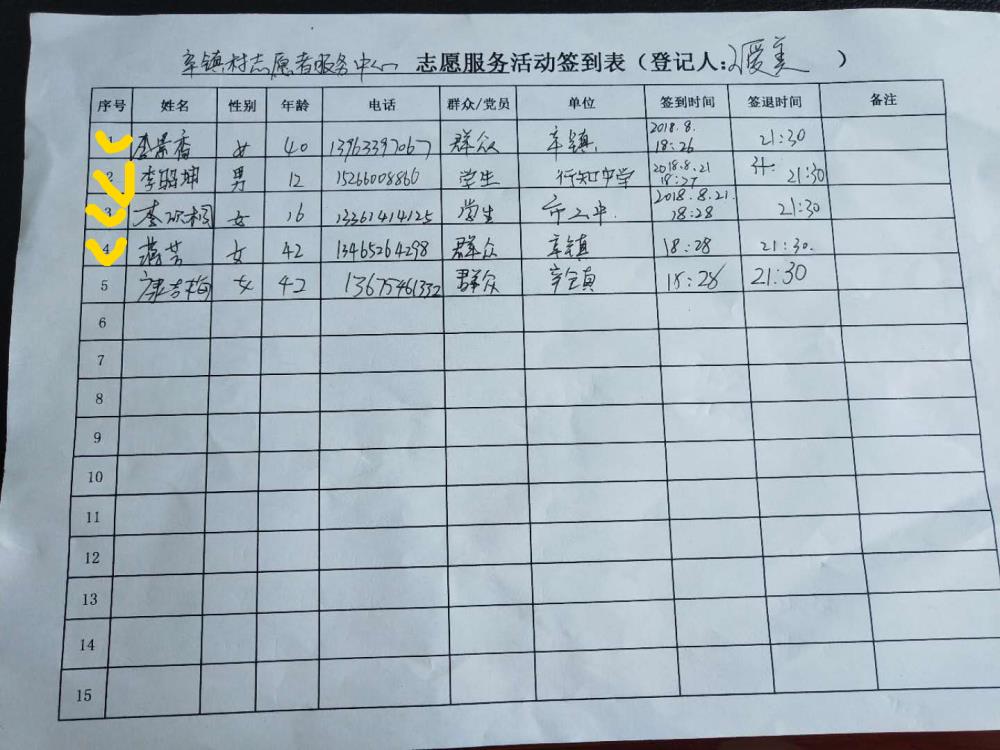 辛镇村志愿者服务中心 志愿服务活动签到表（登记人: 爱美 ）
序号 姓名 性别 年龄 电话 群众/党员 单位 签到时间 签退时间 备注
1 李景香 女 40 13963397067 群众 辛镇. 2018.8. 18:26 21:30
2 李昭坤 男 12 15266008860 学生 行知中学 2018.8.21 18:27 21:30
3 李 桐 女 16 13361414125 学生 2018.8.21. 18:28 21:30
4 芳 女 42 13465264298 群众 辛镇 18:28 21:30.
5 康吉梅 女 42 13675461332 群众 辛镇 18:28 21:30
6
7
8
9
10
11
12
13
14
15